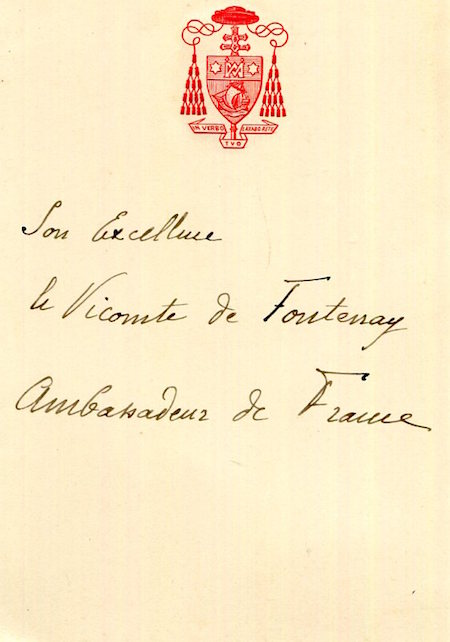 IN VERBO LAXABO RETE
TVO
Son Excellence
le Vicomte de Fontenay
Ambassadeur de France